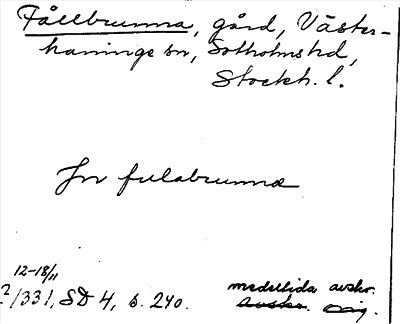 Fållbrunna, gård, Väster-
haninge sn, Sotholms hd,
Stockh. l.
Jn fulabrunnæ
12-18/11
?/1331, SD 4, s. 240.
medeltida avskr.